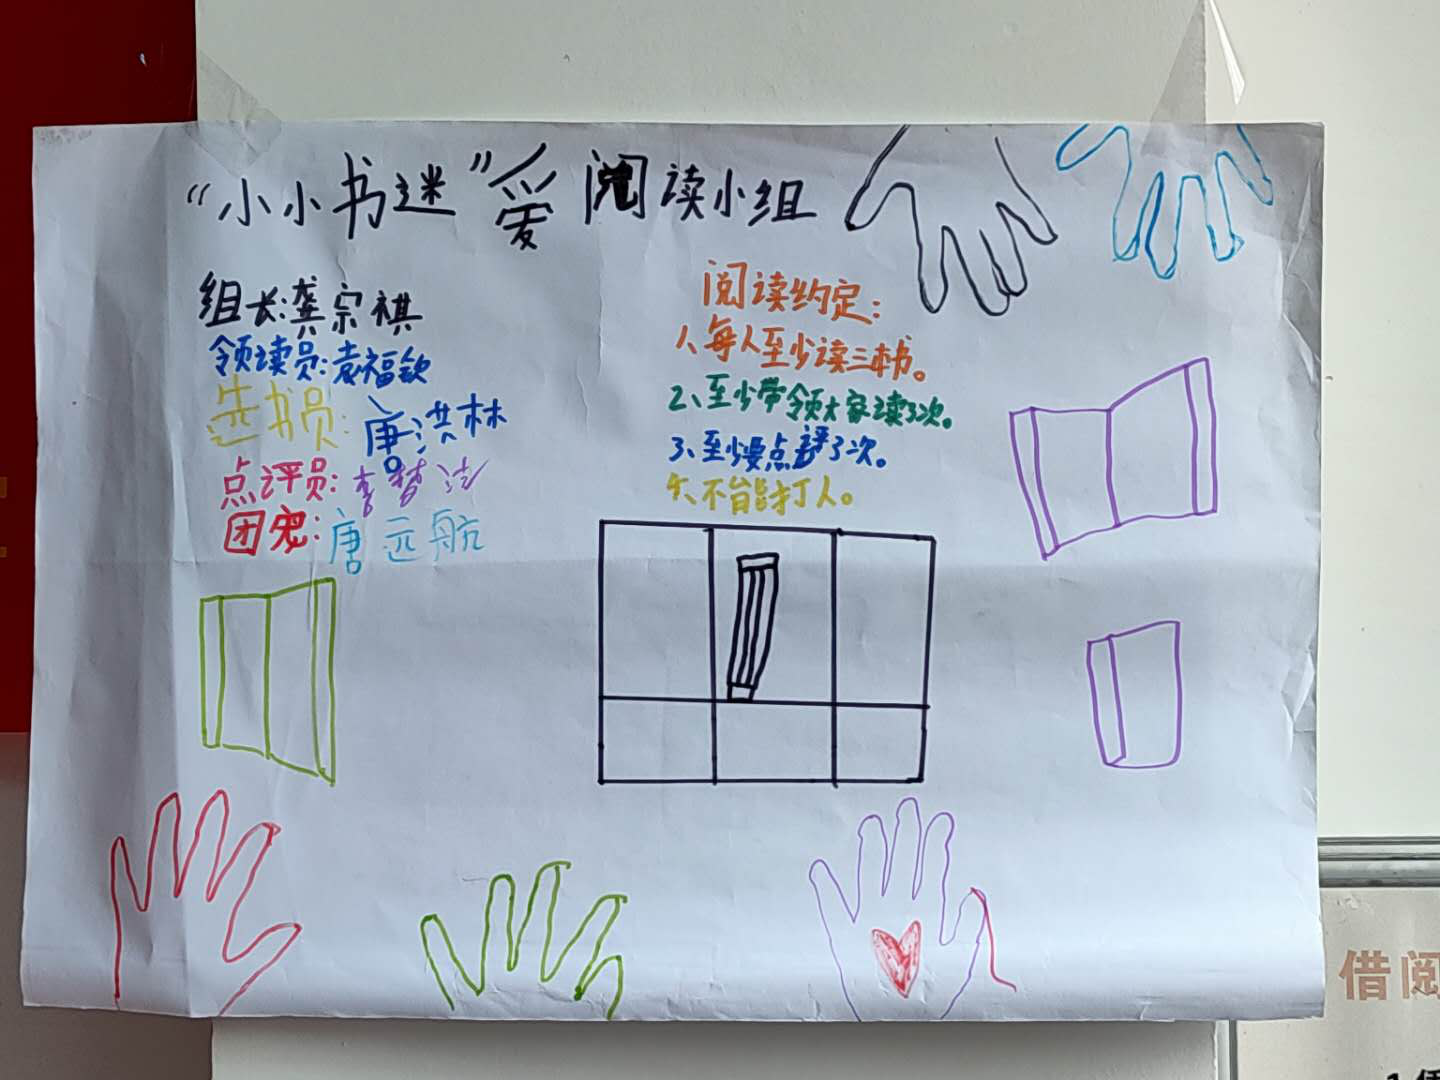 “小小书迷”爱阅读小组
组长:龚宗祺
领读员:袁福钦
选书员:唐洪林
点评员:李梦洁
团宠:唐远航
阅读约定:
1、每人至少读三本书。
2、至少带领大家读3次。
3、至少要点评3次。
4、不能打人。
借阅